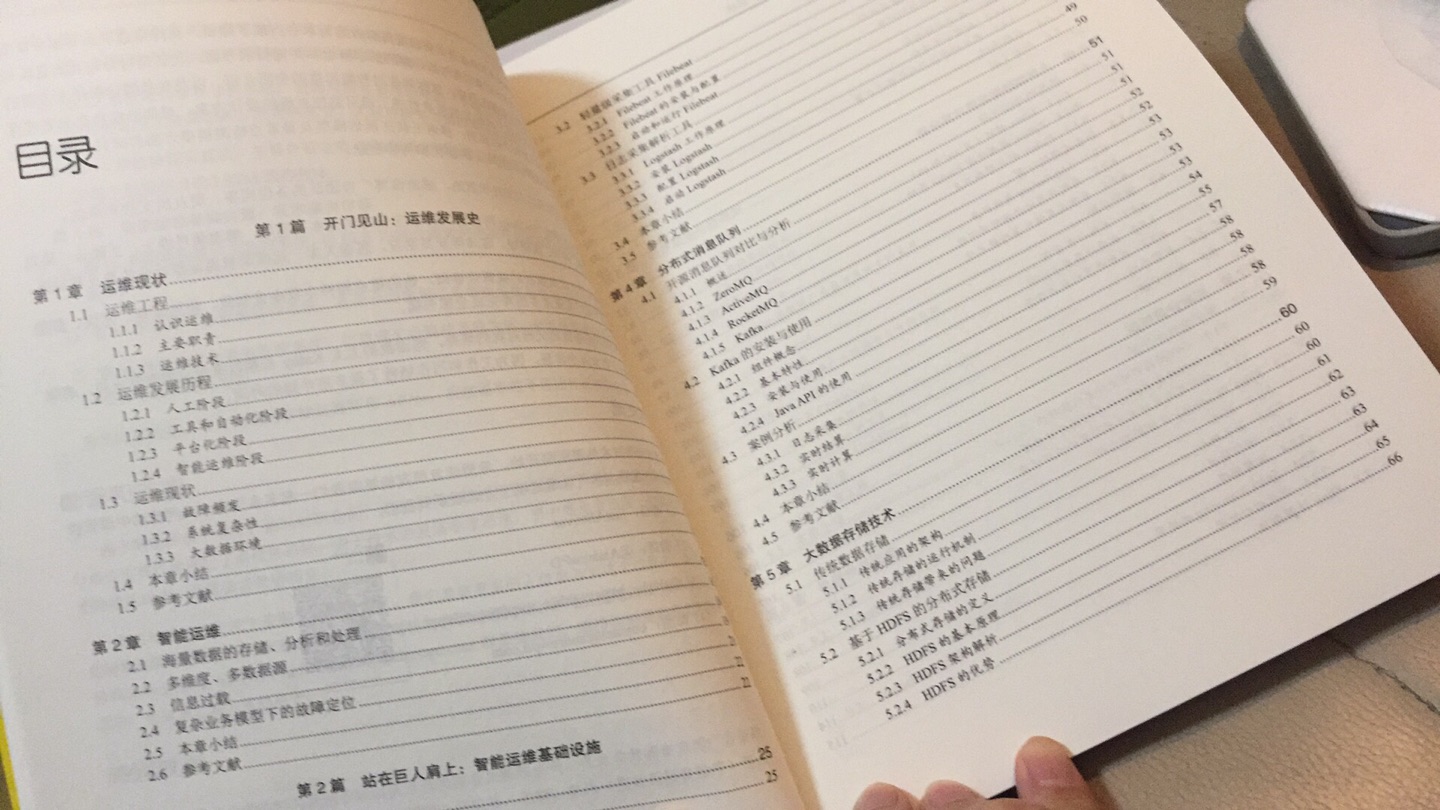 目录
第1篇 开门见山：运维发展史
第1章 运维现状
1.1 运维工程
1.1.1 认识运维
1.1.2 主要职责
1.1.3 运维技术
1.2 运维发展历程
1.2.1 人工阶段
1.2.2 工具和自动化阶段
1.2.3 平台化阶段
1.2.4 智能运维阶段
1.3 运维现状
1.3.1 故障频发
1.3.2 系统复杂性
1.3.3 大数据环境
1.4 本章小结
1.5 参考文献
第2章 智能运维
2.1 海量数据的存储、分析和处理
2.2 多维度、多数据源
2.3 信息过载
2.4 复杂业务模型下的故障定位
2.5 本章小结
2.6 参考文献
第2篇 站在巨人肩上：智能运维基础设施
25
25
3.2 轻量级采集工具 Filebeat
3.2.1 Filebeat 工作原理
3.2.2 Filebeat 的安装与配置
3.2.3 启动和运行 Filebeat
3.3 日志采集解析工具
3.3.1 Logstash 工作原理
3.3.2 安装 Logstash
3.3.3 配置 Logstash
3.3.4 启动 Logstash
3.4 本章小结 49
3.5 参考文献 50
第4章 分布式消息队列 51
4.1 开源消息队列对比与分析 51
4.1.1 概述 51
4.1.2 ZeroMQ 51
4.1.3 ActiveMQ 51
4.1.4 RocketMQ 52
4.1.5 Kafka 52
4.2 Kafka 的安装与使用 53
4.2.1 组件概念 53
4.2.2 基本特性 53
4.2.3 安装与使用 54
4.2.4 Java API 的使用 55
4.3 案例分析 57
4.3.1 日志采集 58
4.3.2 实时结算 58
4.3.3 实时计算 58
4.4 本章小结 58
4.5 参考文献 59
第5章 大数据存储技术 60
5.1 传统数据存储 60
5.1.1 传统应用的架构 60
5.1.2 传统存储的运行机制 61
5.1.3 传统存储带来的问题 62
5.2 基于 HDFS 的分布式存储 63
5.2.1 分布式存储的定义 63
5.2.2 HDFS 的基本原理 64
5.2.3 HDFS 架构解析 65
5.2.4 HDFS 的优势 66